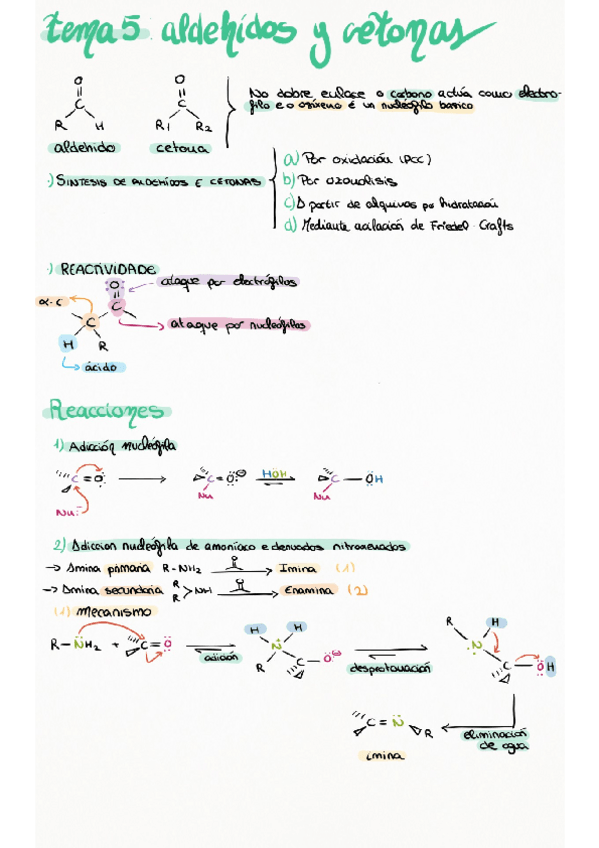 tema 5 aldehídos y cetonas
O
C
R H
aldehido
O
C
R₁ R₂
cetona
No dobre enlace o carbono actúa como electro-
filo e o oxíxeno é un nucleófilo basico
·) SINTESIS DE ALDEHÍDOS E CETONAS
a) Por oxidación (PCC)
b) Por ozonolisis
c) A partir de alquinos por hidratación
d) Mediante acilación de Friedel-Crafts
·) REACTIVIDADE
:O:
ataque por electrófilos
α-C
C
C
ataque por nucleófilos
H R
ácido
Reacciones
1) Adicción nucleófila
C=O
Nu:⁻
C-O⊖
Nu
HOH
C-OH
Nu
2) Adiccion nucleófila de amoníaco e derivados nitroxenados
→ Amina primaria R-NH₂ → Imina (1)
→ Amina secundaria R R >NH → Enamina (2)
(1) Mecanismo
R-NH₂ + C=O
adición
H H
N⁺
R C-O⊖
desprotonación
R H
N
C-OH
eliminación
de agua
C=N
R
imina